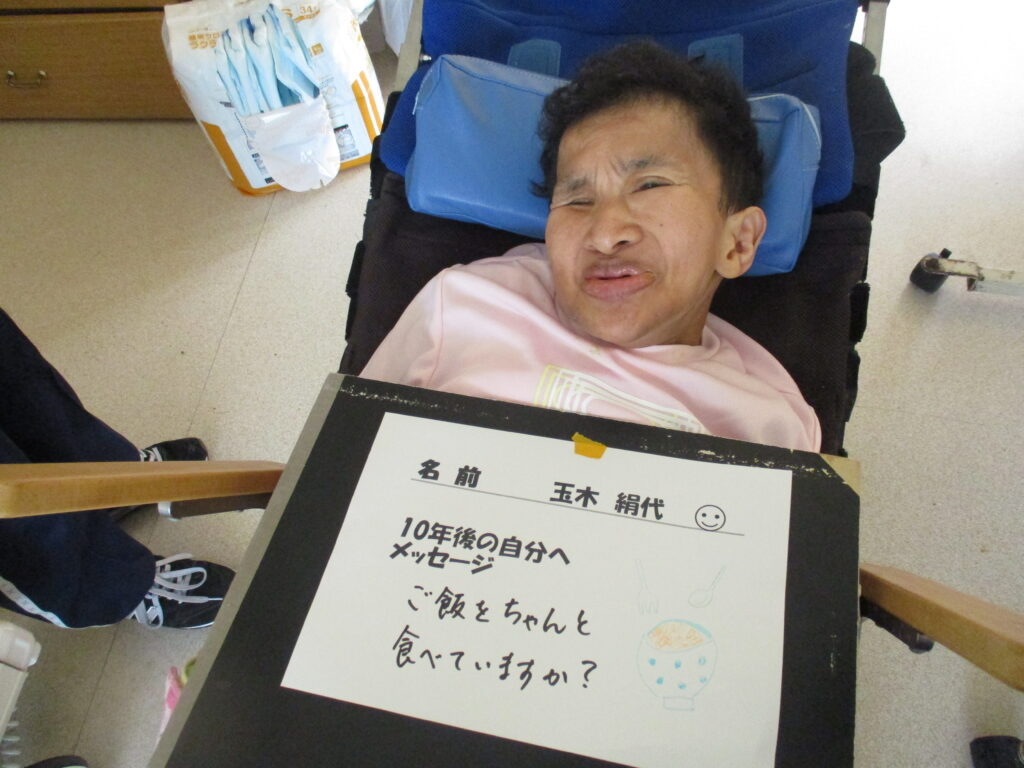 名前 玉木 絹代
10年後の自分へ
メッセージ
ご飯をちゃんと
食べていますか?